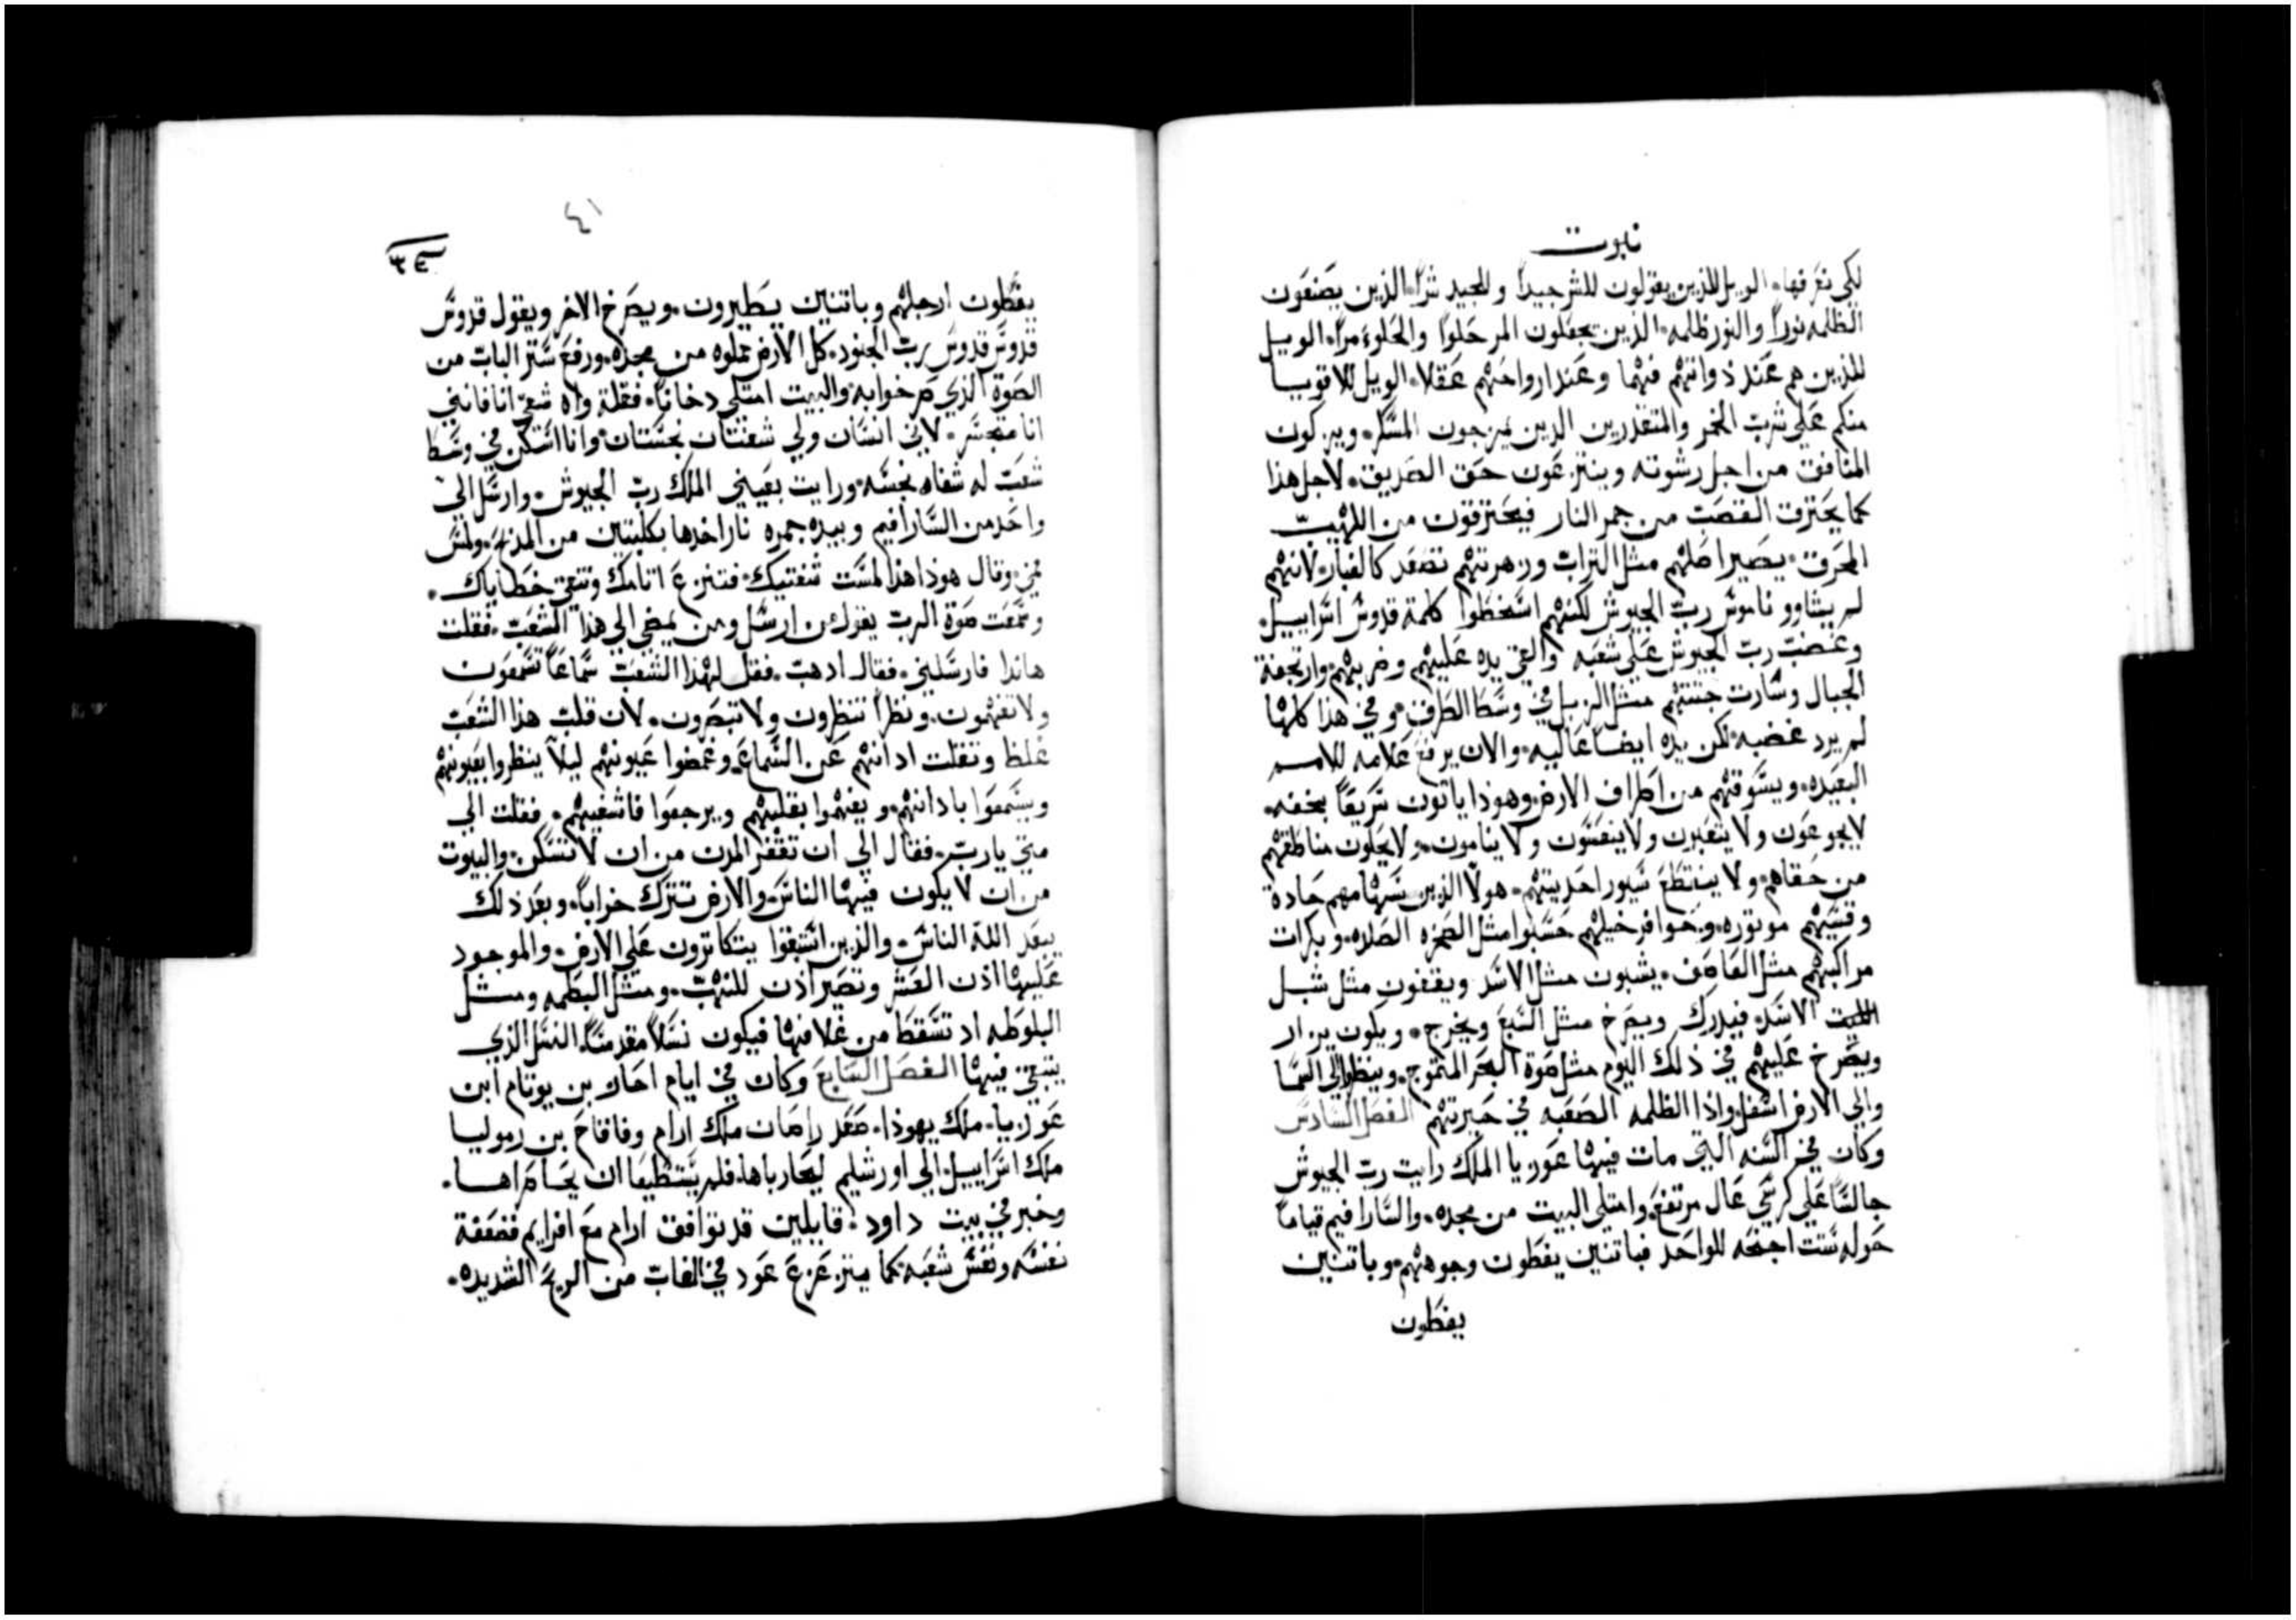 نبوت
لكى نعرفها. الويل للذين يقولون للشر جيداً وللجيد شراً. الذين يصنعون
الظلمه نوراً والنور ظلمه. الذين يجعلون المر حلواً والحلو مراً. الويل
للذين هم عند ذواتهم فهما وعند ارواحهم عقلا. الويل للاقويا
منكم على شرب الخمر والمقتدرين الدين يمزجون المسكر. ويبركون
المنافق من اجل رشوته وينتزعون حق الصديق. لاجل هذا
كما يحترق القصب من جمر النار فيحترقون من اللهيب
المحرق. يصير اصلهم مثل التراب وزهرتهم تصعد كالغبار. لانهم
لم يشاوو ناموس رب الجيوش لكنهم اسخطوا كلمة قدوس اسراييل.
وغضب رب الجيوش على شعبه والقى يده عليهم وضربهم. وارتجفة
الجبال وصارت جثتهم مثل الزبل في وسط الطرق. وفي هذا كلها
لم يرد غضبه. لكن يده ايضا عاليه. والان يرفع علامه للامم
البعيده. ويسوقهم من اطراف الارض. وهوذا ياتون سريعاً بخفه.
لا يجوعون ولا يتعبون ولا ينعسون ولا ينامون. ولا يحلون مناطقهم
من حقاهم. ولا ينقطع سيور احديتهم. هولا الذين سهامهم حادة
وقسيهم موتوره. وحوافر خيلهم حسبوا مثل الصخره الصلده. وبكرات
مراكبهم مثل العاصف. يشبون مثل الاسد ويقفون مثل شبل
الاسد. فيدرك ويصرخ مثل السبع ويخرج. ويكون يزار
ويصرخ عليهم في ذلك اليوم مثل صوة البحر المتموج. وينظر الى السما
والى الارض اسفل. واذا الظلمه الصعبه في حيرتهم الفصل السادس
وكان في السنه التي مات فيها عوزيا الملك رايت رب الجيوش
جالسا على كرسي عال مرتفع. وامتلى البيت من مجده. والسارافيم قياما
حوله ستت اجنحه للواحد فباتنين يغطون وجوههم. وباتنين
يغطون
٤١
يغطون ارجلهم وباتنين يطيرون. ويصرخ الاخر ويقول قدوس
قدوس قدوس رب الجنود. كل الارض مملوه من مجده. ورفع ستر الباب من
الصوة الذي صرخوا به. والبيت امتلى دخاناً. فقلة واه شقى انا فانني
انا متحسر. لاني انسان ولي شفتان نجستان. وانا اسكن في وسط
شعب له شفاه نجسه. ورايت بعيني الملك رب الجيوش. وارسل الى
واحد من السارافيم وبيده جمره نار اخدها بكلبتين من المذبح. ولمس
فمي. وقال هوذا هذا لمست شفتيك. فتنزع اتامك وتنقى خطاياك.
وسمعت صوة الرب يقول من ارسل ومن يمضي الى هذا الشعب. فقلت
هاندا فارسلني. فقال ادهب. فقل لهذا الشعب سماعاً تسمعون
ولا تفهمون. ونظراً تنظرون ولا تبصرون. لان قلب هذا الشعب
غلظ وتقلت ادانهم عن السماع. وغمضوا عيونهم ليلا ينظروا بعيونهم
ويسمعوا بادانهم. ويفهموا بقلبهم ويرجعوا فاشفيهم. فقلت الى
متى يارب. فقال الى ان تقفر المدن من ان لا تسكن. والبيوت
من ان لا يكون فيها الناس. والارض تترك خراباً. وبعد ذلك
يبعد الله الناس. والذين اشبقوا يتكاترون على الارض. والموجود
عليها اذن العشر وتصير اذن للنهب. ومتل البطمه ومتل
البلوطه اد تسقط من غلافها فيكون نسلاً مقدسًا. النسل الذي
يبقى فيها الفصل السابع وكان في ايام احاز بن يوتام ابن
عوزيا. ملك يهوذا. صعد راصان ملك ارام وفاقاح بن رموليا
ملك اسراييل الى اورشليم ليحارباها. فلم يستطيعا ان يحاصراها.
وخبر في بيت داود. قايلين قد توافق ارام مع افرايم فضعفة
نفسه ونفس شعبه. كما يتزعزع عود في الغاب من الريح الشديده.